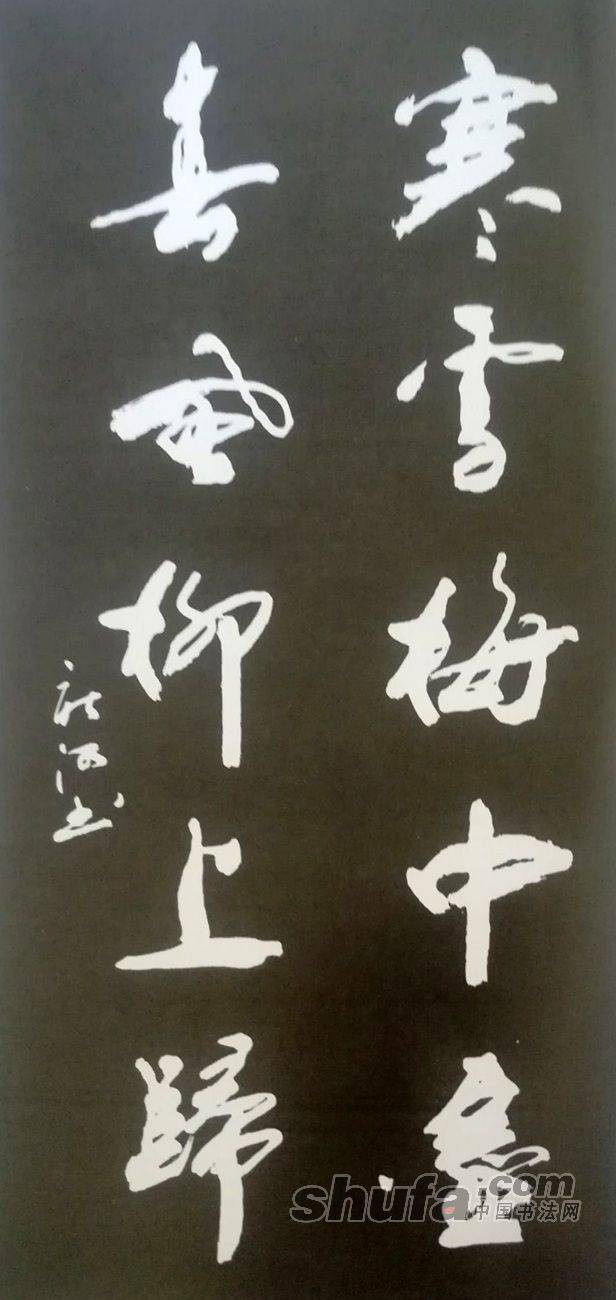 寒雪梅中盡
春風柳上歸
河書
shufa.com
中国书法网